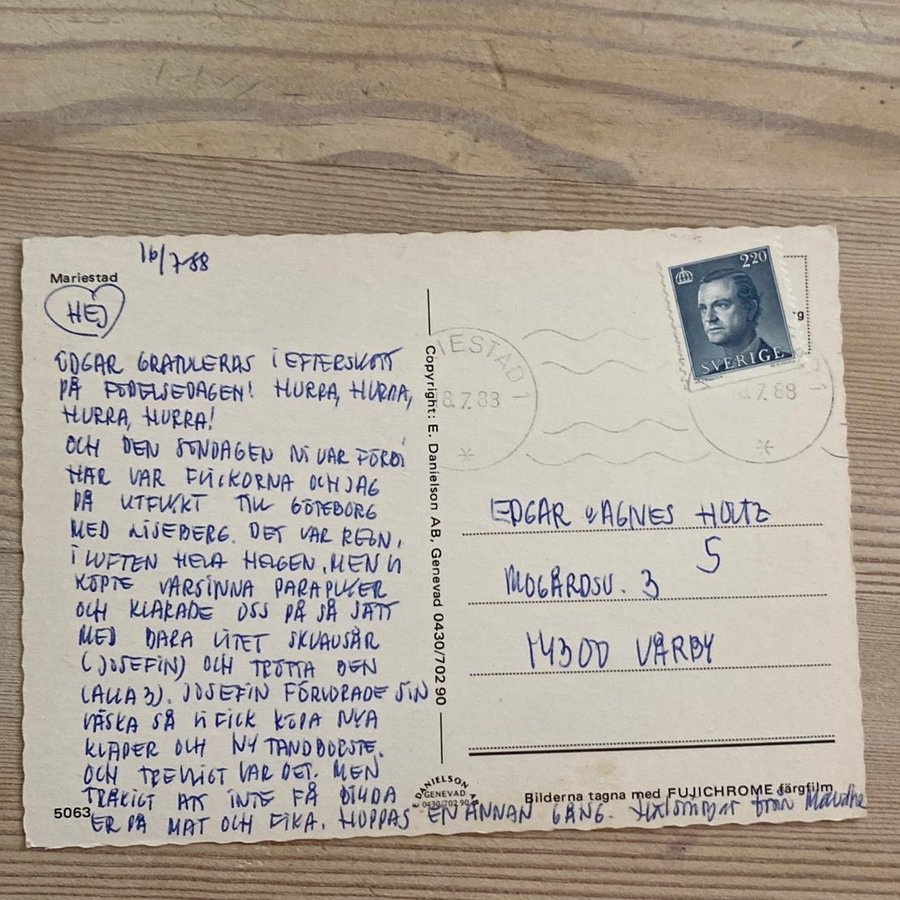 16/7-88
Mariestad
HEJ
EDGAR GRATULERAS I EFTERSKOTT
PÅ FÖDELSEDAGEN! HURRA, HURRA,
HURRA, HURRA!
OCH DEN SÖNDAGEN NI VAR FÖRBI
HÄR VAR FLICKORNA OCH JAG
PÅ UTFLYKT TILL GÖTEBORG
MED LISEBERG. DET VAR REGN
I LUFTEN HELA HELGEN. MEN VI
KÖPTE VARSINNA PARAPLYER
OCH KLARADE OSS PÅ SÅ SÄTT
MED BARA LITET SKVAVSÅR
(JOSEFIN) OCH TRÖTTA BEN
(ALLA 3). JOSEFIN FÖRLORADE SIN
VÄSKA SÅ VI FICK KÖPA NYA
KLÄDER OCH NY TANDBORSTE.
OCH TREVLIGT VAR DET. MEN
TRÅKIGT ATT INTE FÅ BJUDA
ER PÅ MAT OCH FIKA. HOPPAS EN ANNAN GÅNG. från
5063
Copyright: E. Danielson AB, Genevad 0430/702 90
E DANIELSON AB
GENEVAD
0430/702 90
220
SVERIGE
MARIESTAD 1
18.7.88
8.7.88
1
g
EDGAR & AGNES HOLTZ
MOGÅRDSV. 3 5
14300 VÅRBY
Bilderna tagna med FUJICHROME färgfilm